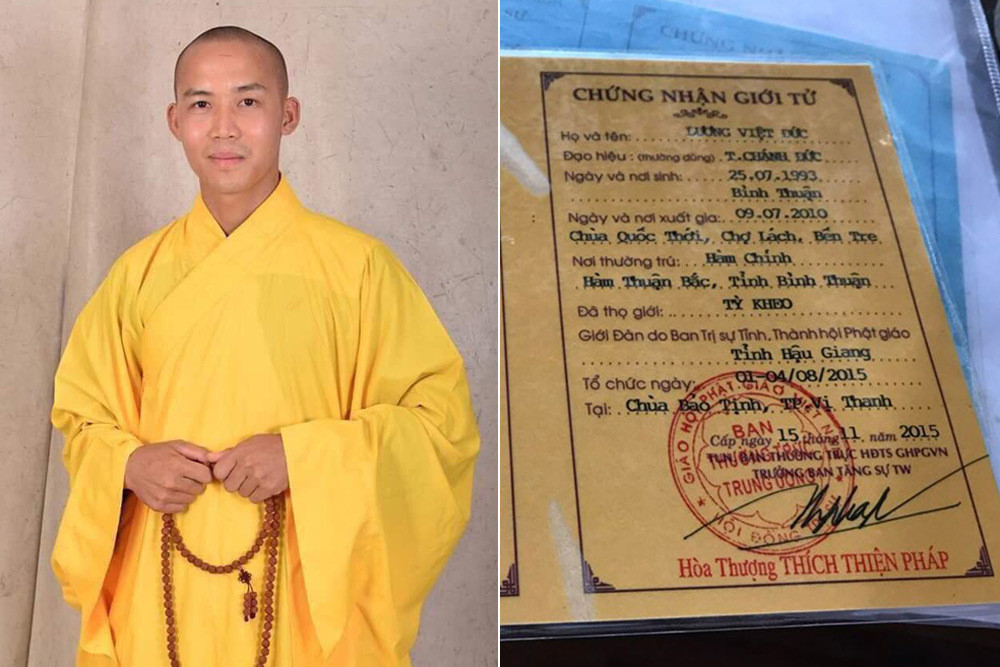 CHỨNG NH
CHỨNG NHẬN GIỚI TỬ
Họ và tên: LƯƠNG VIỆT ĐỨC
Đạo hiệu: (thường dùng) T.CHÁNH ĐỨC
Ngày và nơi sinh: 25.07.1993
Bình Thuận
Ngày và nơi xuất gia: 09.07.2010
Chùa Quốc Thới, Chợ Lách, Bến Tre
Nơi thường trú: Hàm Chính
Hàm Thuận Bắc, Tỉnh Bình Thuận
Đã thọ giới: TỲ KHEO
Giới Đàn do Ban Trị sự Tỉnh, Thành hội Phật giáo
Tỉnh Hậu Giang
Tổ chức ngày: 01-04/08/2015
Tại: Chùa Bảo Tịnh, TP.Vị Thanh
Cấp ngày 15 tháng 11 năm 2015
TUN. BAN THƯỜNG TRỰC HĐTS GHPGVN
TRƯỞNG BAN TĂNG SỰ TW
GIÁO HỘI PHẬT GIÁO VIỆT NAM
BAN
THƯỜNG TRỰC
TRUNG ƯƠNG
HỘI ĐỒNG
Hòa Thượng THÍCH THIỆN PHÁP